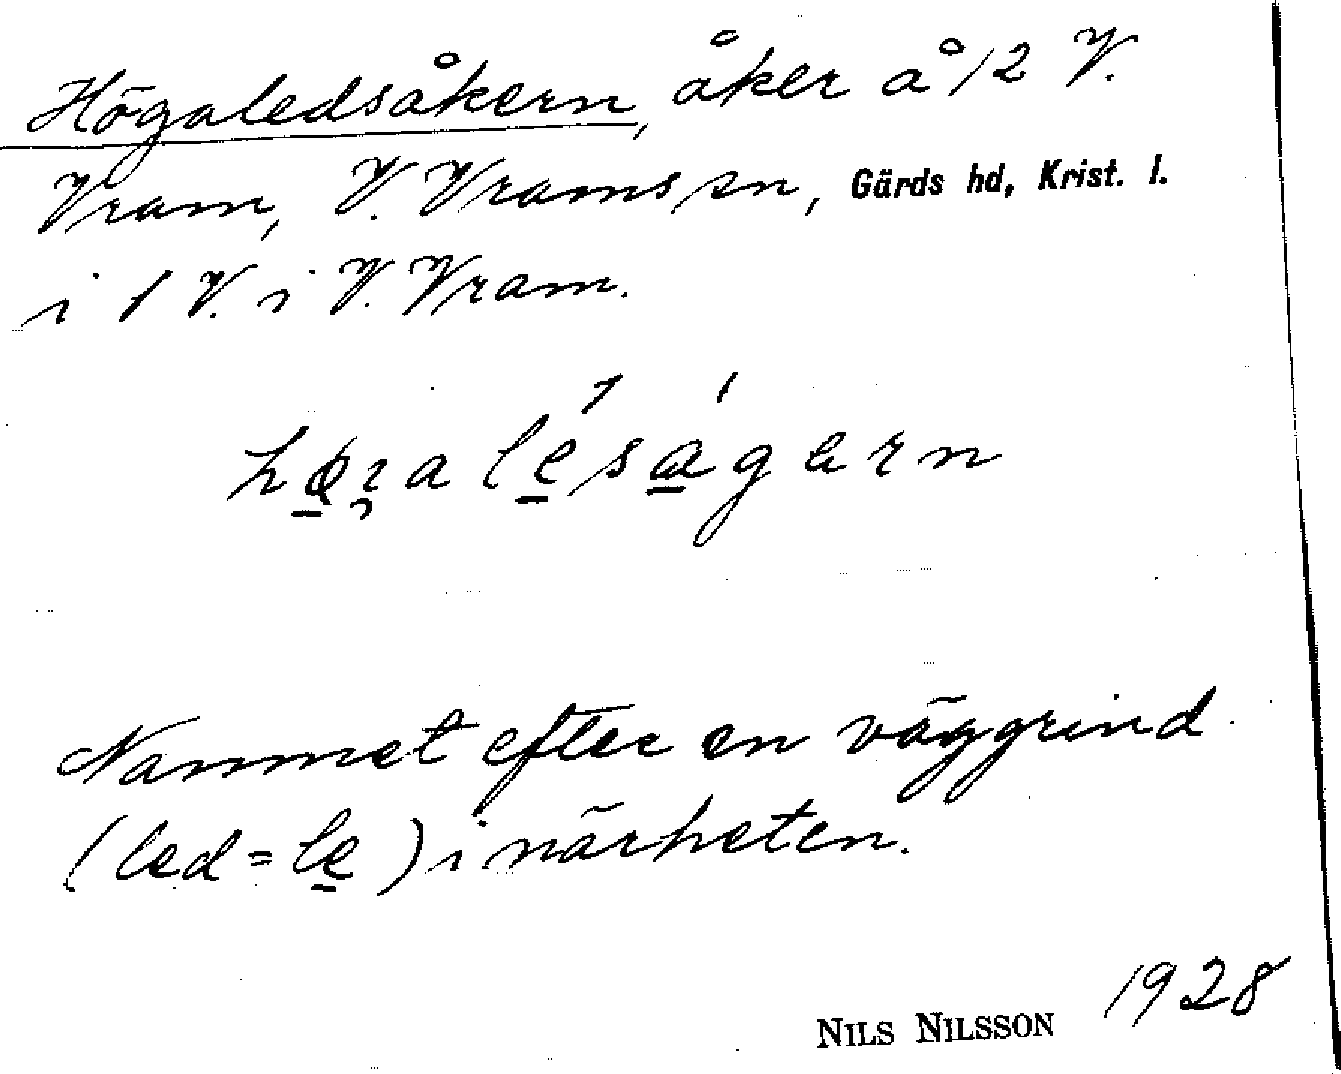 Högaledsåkern, åker å 12 V.
Vram, V. Vrams sn, Gärds hd, Krist. l.
i 1 V. i V. Vram.
Namnet efter en väggrind
(led = le) i närheten.
NILS NILSSON 1928